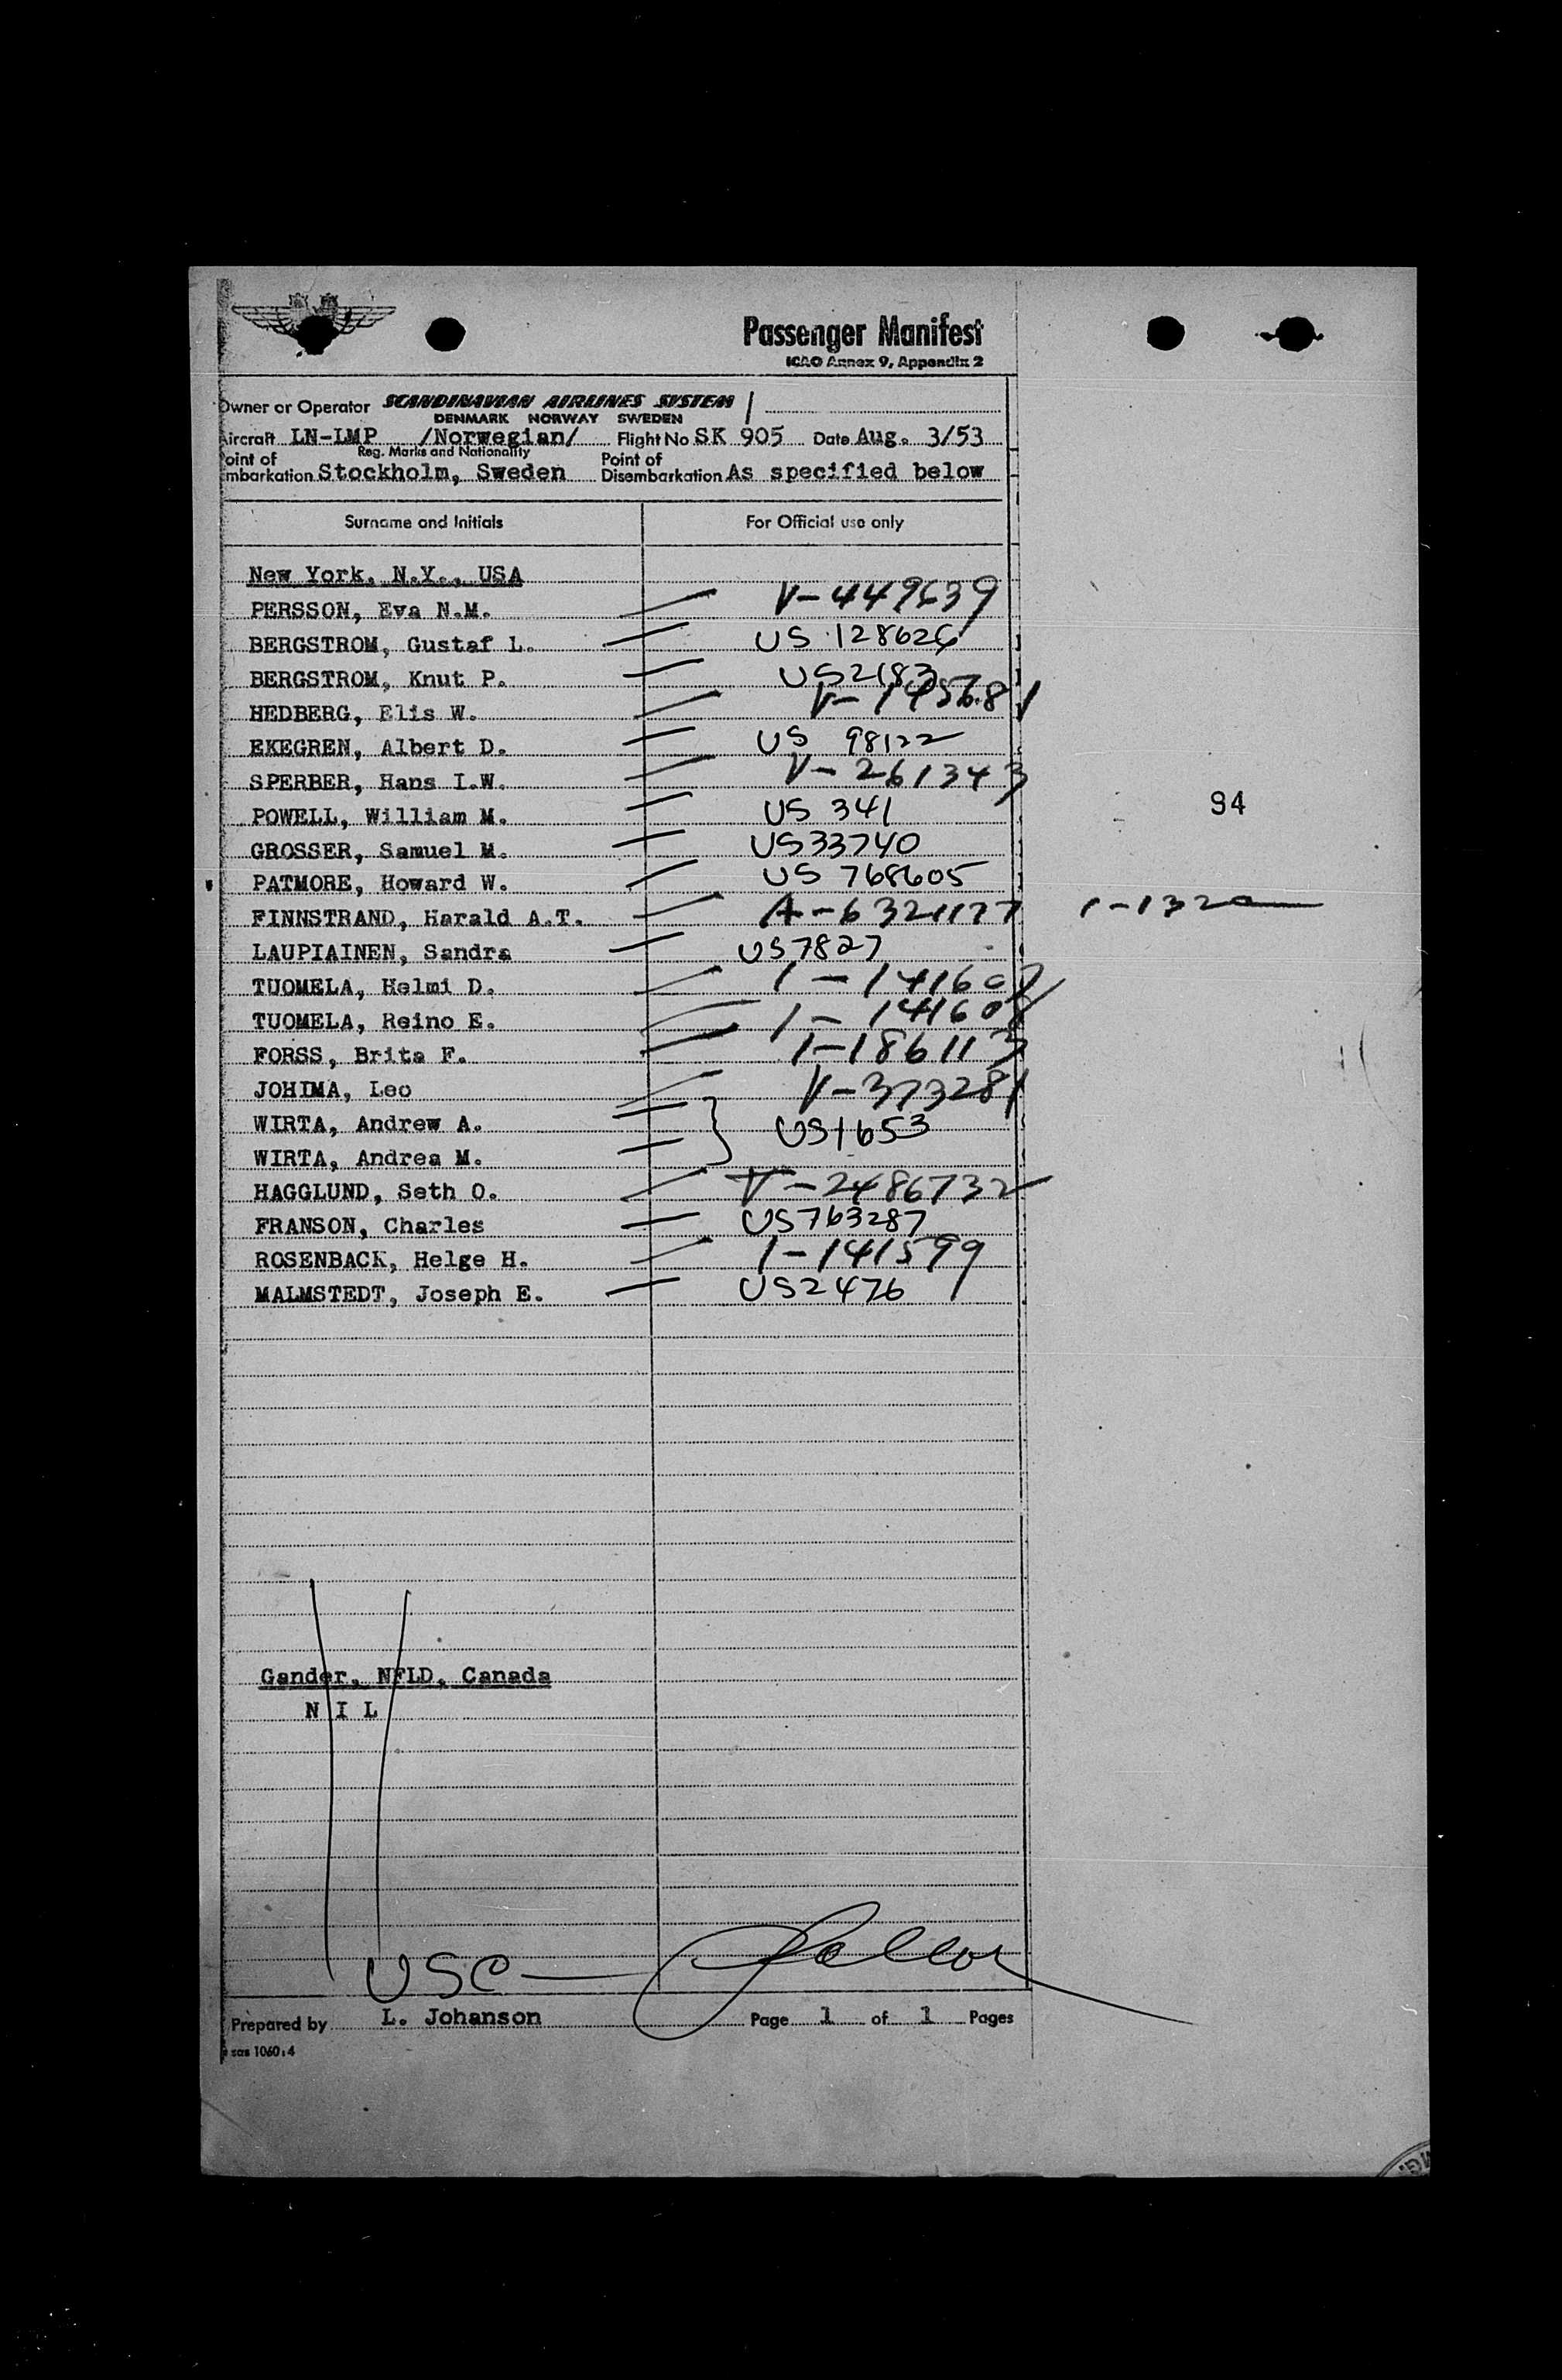 Passenger Manifest
ICAO Annex 9, Appendix 2
Owner or Operator SCANDINAVIAN AIRLINES SYSTEM
DENMARK NORWAY SWEDEN
Aircraft LN-LMP /Norwegian/ Flight No SK 905 Date Aug. 3/53
Reg. Marks and Nationality
Point of Embarkation Stockholm, Sweden Point of Disembarkation As specified below
Surname and Initials For Official use only
New York, N.Y., USA
PERSSON, Eva N.M. V-449639
BERGSTROM, Gustaf L. US 128626
BERGSTROM, Knut P. US2183
HEDBERG, Elis W.
EKEGREN, Albert D. US 98122
SPERBER, Hans I.W. V-261343
POWELL, William M. US 341
94
GROSSER, Samuel M. US33740
PATMORE, Howard W. US 768605
FINNSTRAND, Harald A.T. A-6321177 1-132
LAUPIAINEN, Sandra US7827
TUOMELA, Helmi D.
TUOMELA, Reino E. 1-141608
FORSS, Brita F. 1-186113
JOHIMA, Leo V-373281
WIRTA, Andrew A. US1653
WIRTA, Andrea M.
HAGGLUND, Seth O. V-2486732
FRANSON, Charles US763287
ROSENBACK, Helge H. 1-141599
MALMSTEDT, Joseph E. US2476
Gander, NFLD, Canada
N I L
USC
Prepared by L. Johanson Page 1 of 1 Pages
sas 1060:4